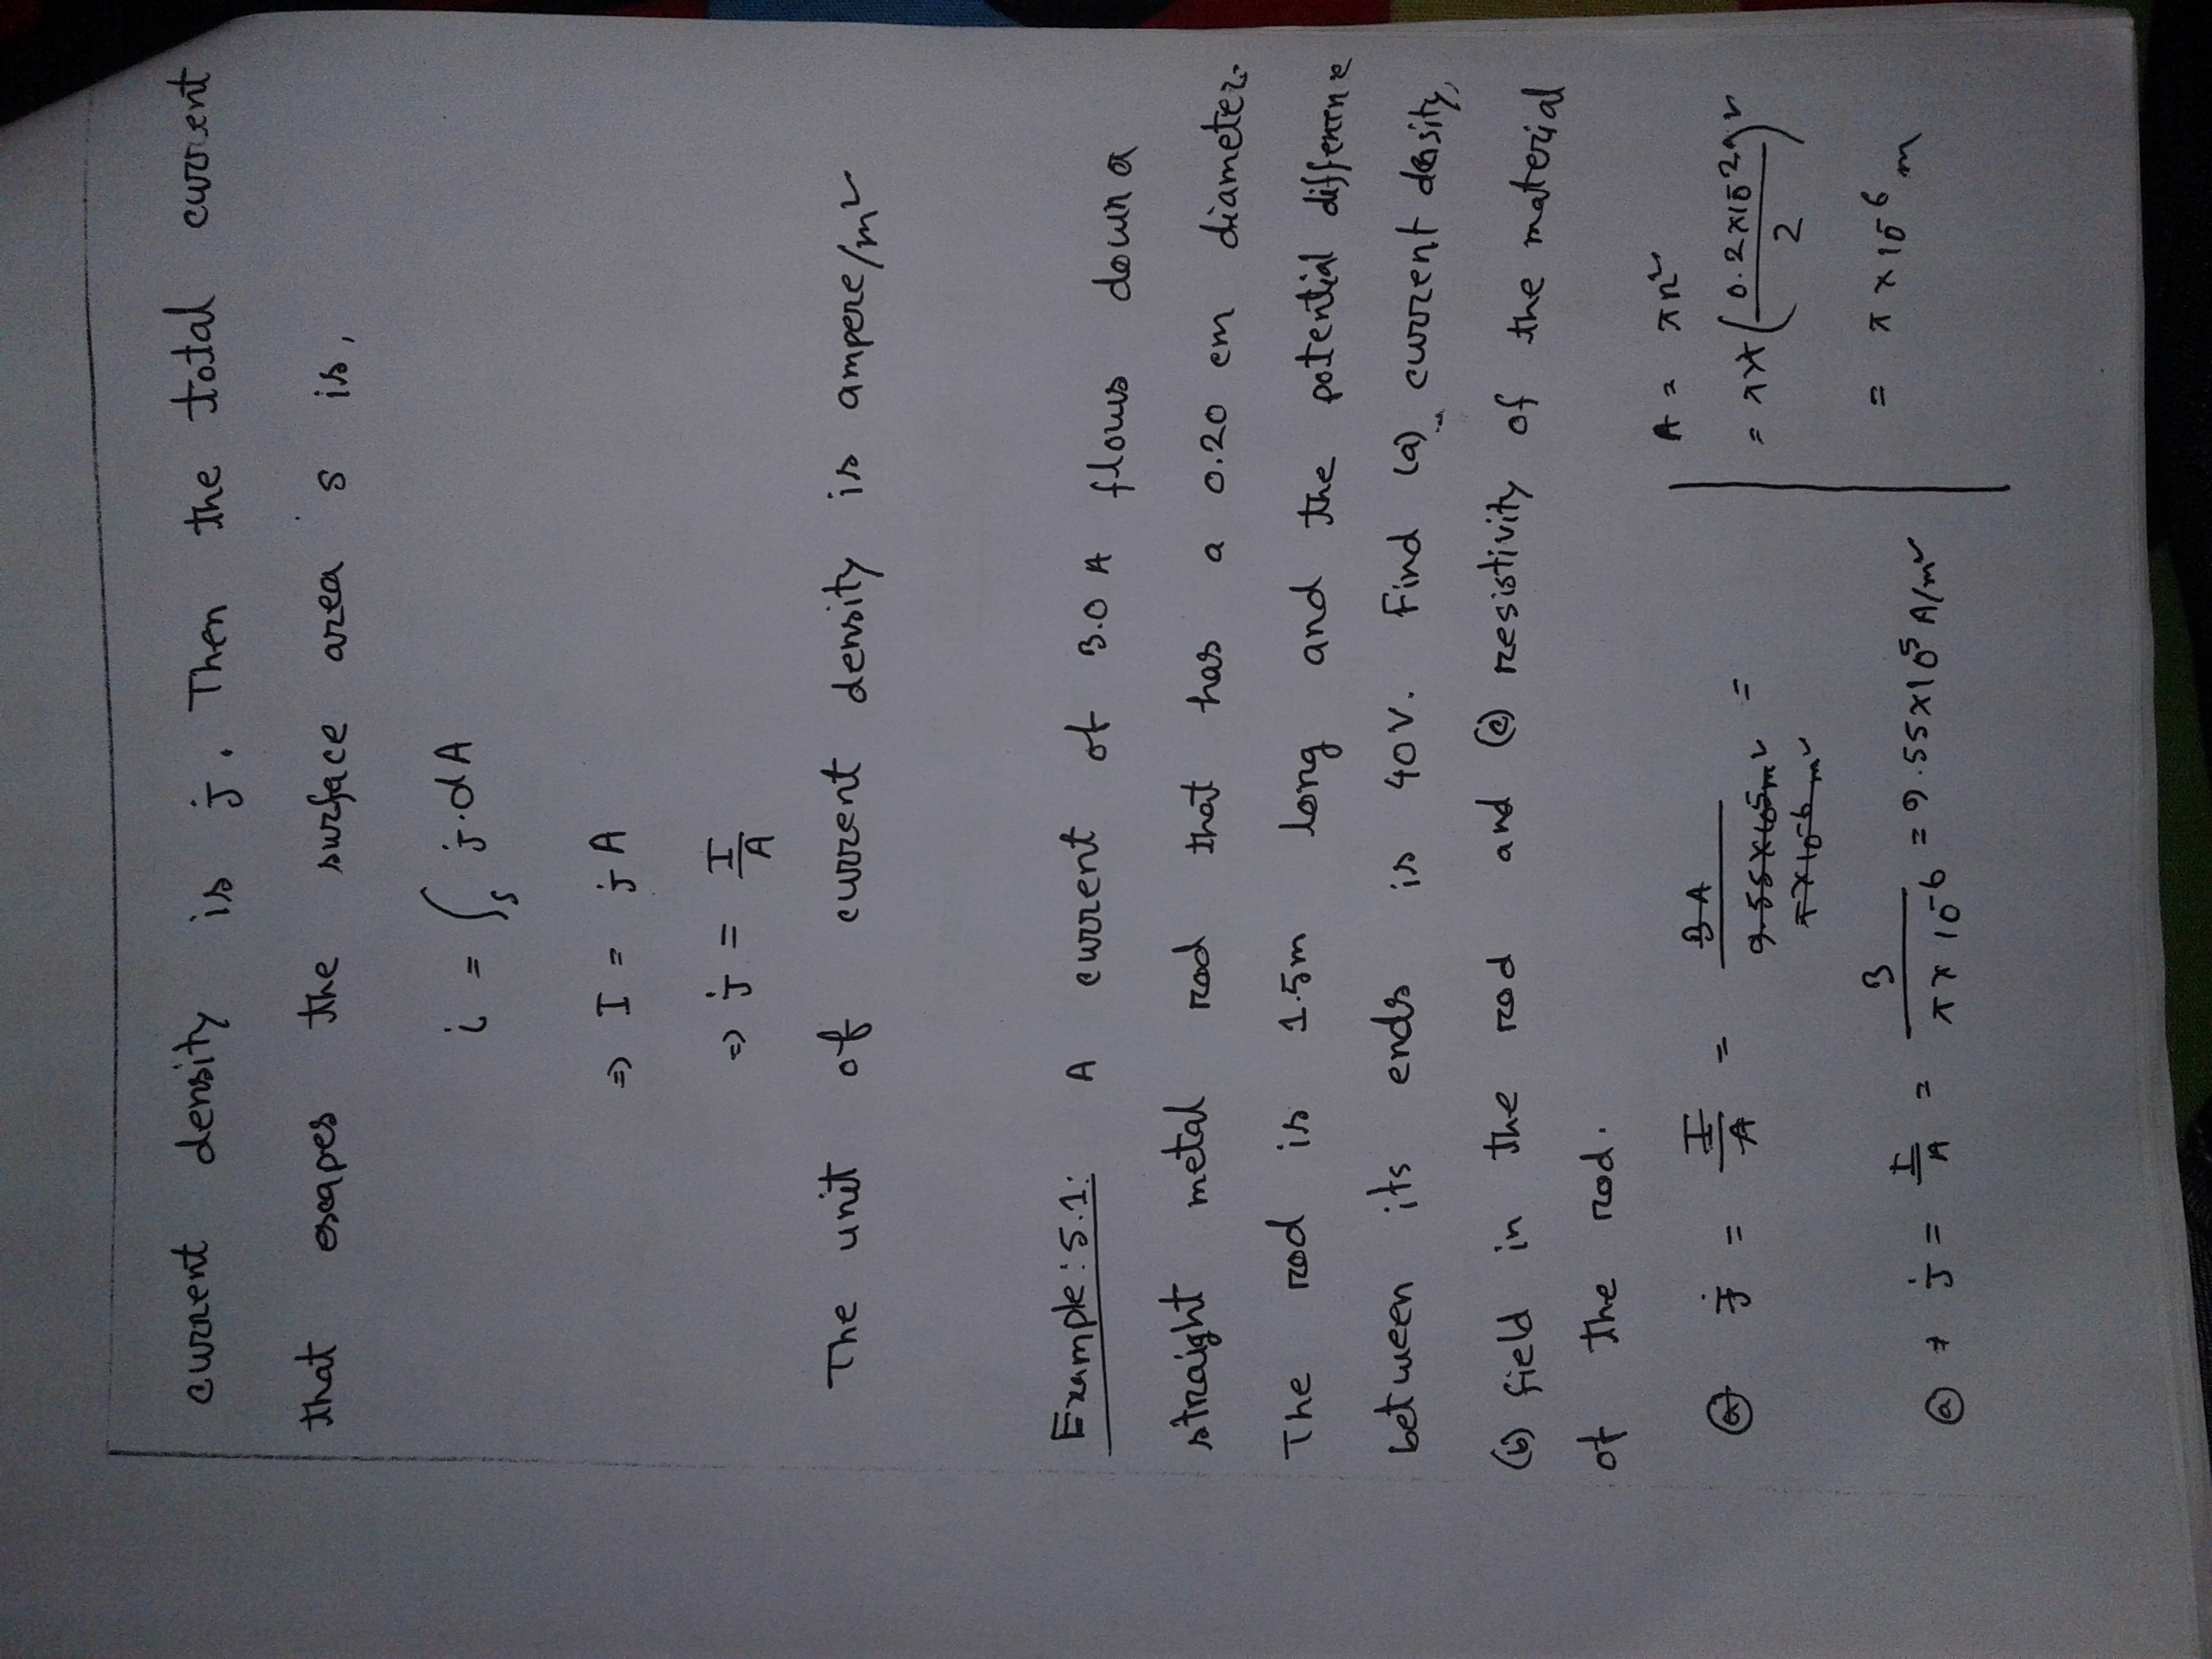 current density is j. Then the total current
that escapes the surface area s is,
i = ∫s j.dA
=> I = jA
=> j = I/A
The unit of current density is ampere/m²
Example: 5.1: A current of 3.0 A flows down a
straight metal rod that has a 0.20 cm diameter.
The rod is 1.5m long and the potential difference
between its ends is 40V. Find (a) current density,
(b) field in the rod and (c) resistivity of the material
of the rod.
(a) j = I/A = 3A / 9.55×10⁵m² =
π×10⁻⁶ m²
(a) j = I/A = 3/(π×10⁻⁶) = 9.55×10⁵ A/m²
A = πr²
= π×(0.2×10⁻²/2)²
= π×10⁻⁶ m